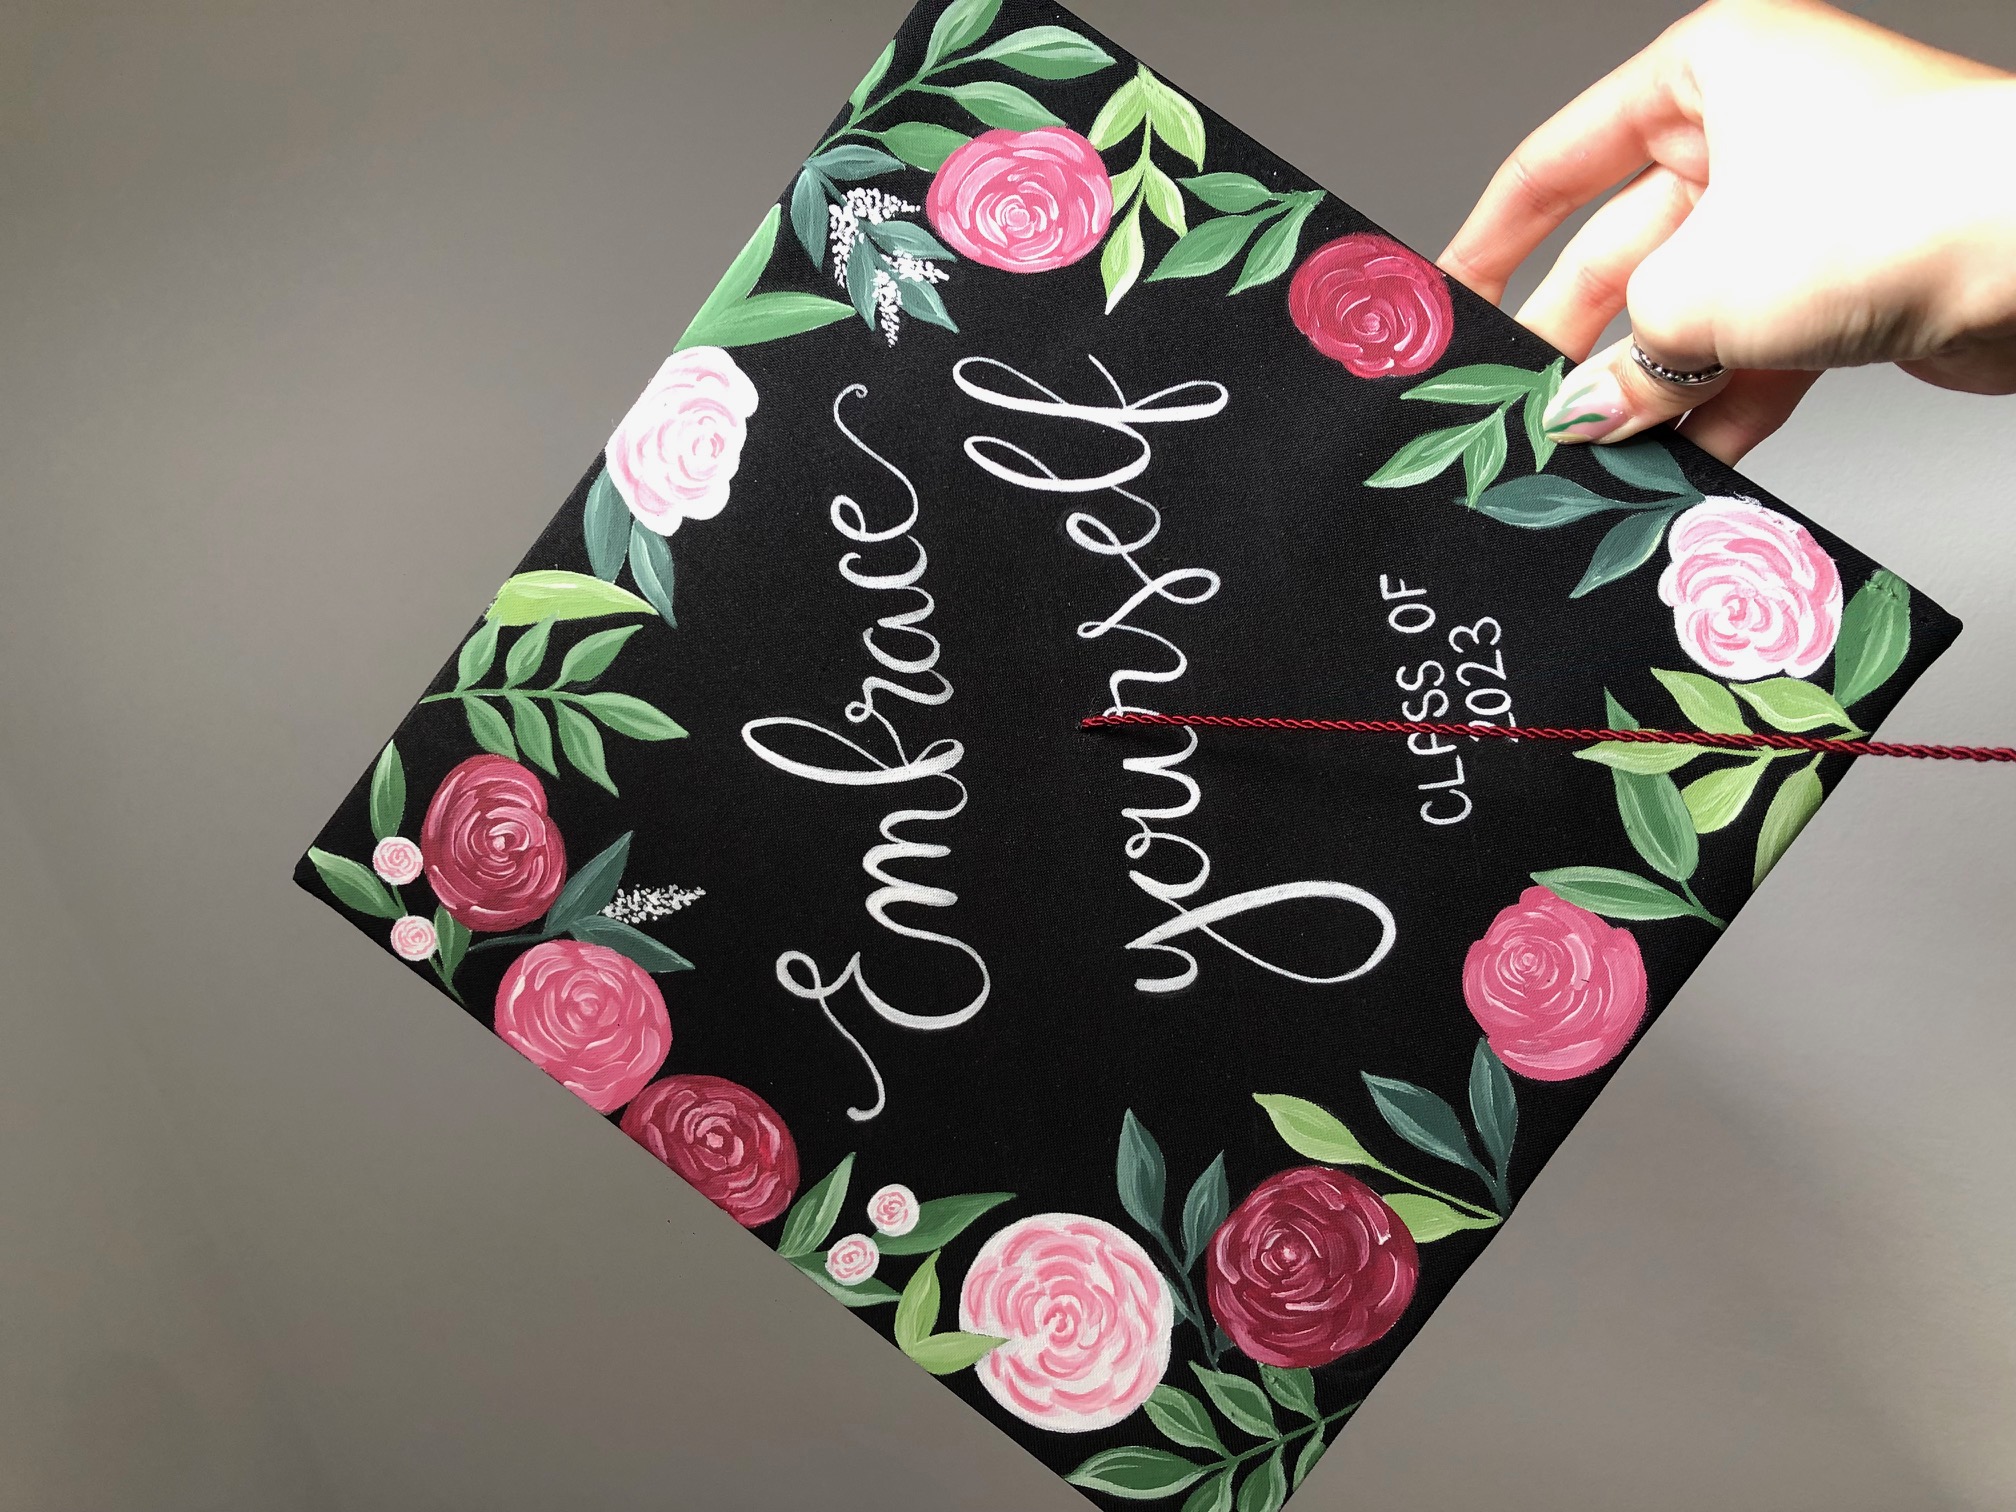 Embrace
yourself
CLASS OF
2023